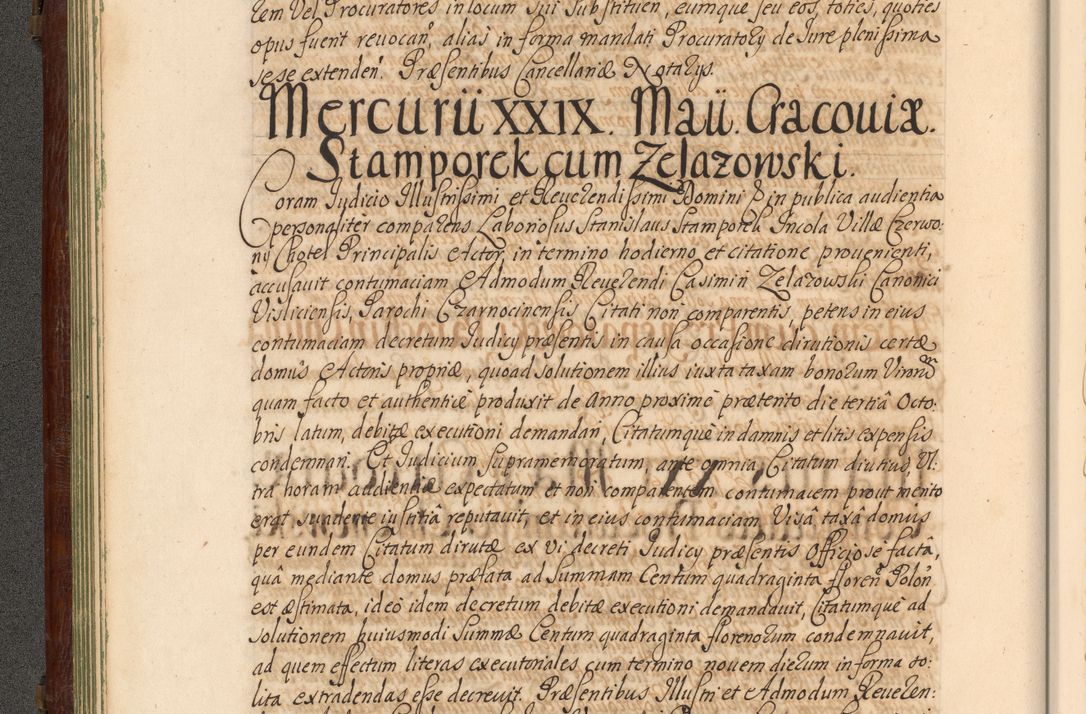 tem vel Procuratores in locum sui substituen, eumque seu eos, toties, quoties
opus fuerit reuocan, alias in forma mandati Procuratorÿ de Jure plenissima
sese extenden. Præsentibus Cancellariæ Notarÿs.
Mercurii XXIX. Maii. Cracouiæ.
Stamporek cum Zelazowski.
Coram Judicio Illustrissimi et Reuerendissimi Domini & in publica audientia
personaliter comparens Laboriosus Stanislaus Stamporek Incola Villæ Czerwo:
ny Chotel Principalis Actor, in termino hodierno et citatione prouenienti,
accusauit contumaciam Admodum Reuerendi Casimiri Zelazowski Canonici
Visliciensis, Parochi Czarnocinensis Citati non comparentis, petens in eius
contumaciam decretum Judicÿ præsentis in causa occasione dirutionis certæ
domûs Actoris propriæ, quoad solutionem illius iuxta taxam bonorum Virorum
quam facto et authenticè produxit de Anno proximè prætento die tertiâ Octo:
bris latum, debitæ executioni demandari, Citatumquè in damnis et litis expensis
condemnari. Et Judicium supramemoratum, ante omnia Citatum diutius Vl:
tra horam audientiæ expectatum et non comparentem contumacem prout merito
erat, suadente iustitiâ reputauit, et in eius contumaciam, Visâ taxâ domûs
per eundem Citatum dirutæ ex vi decreti Judicÿ præsentis Officiose factâ,
quâ mediante domus præfata ad Summam Centum quadraginta floren Polon
est æstimata, ideo idem decretum debitæ executioni demandauit, Citatumquè ad
solutionem huiusmodi Summæ Centum quadraginta florenorum condemnauit,
ad quem effectum literas executoriales cum termino nouem dierum in forma so:
lita extradendas esse decreuit. Præsentibus Illustri et Admodum Reueren: